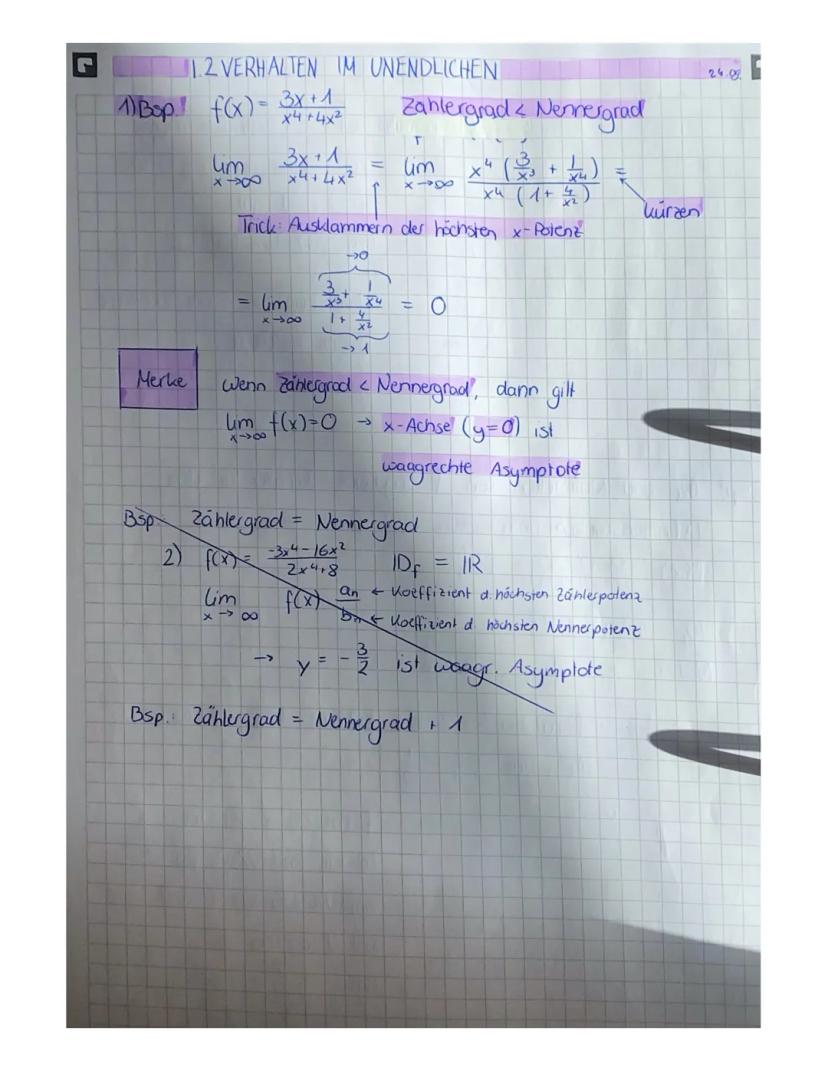 1.2 VERHALTEN IM UNENDLICHEN
24.09.
1) Bsp! f(x) = (3x+1)/(x⁴+4x²) Zählergrad < Nennergrad
lim x→∞ (3x+1)/(x⁴+4x²) = lim x→∞ (x⁴(3/x³ + 1/x⁴))/(x⁴(1+4/x²)) =
kürzen
Trick: Ausklammern der höchsten x-Potenz
→0
= lim x→∞ (3/x³ + 1/x⁴)/(1 + 4/x²) = 0
→1
Merke
Wenn Zählergrad < Nennergrad, dann gilt
lim x→∞ f(x)=0 → x-Achse (y=0) ist
waagrechte Asymptote
Bsp. Zählergrad = Nennergrad
2) f(x) = (-3x⁴-16x²)/(2x⁴+8) ID_f = IR
lim x→∞ f(x) an/bn ← Koeffizient d. höchsten Zählerpotenz
← Koeffizient d. höchsten Nennerpotenz
→ y = -3/2 ist waagr. Asymptote
Bsp.: Zählergrad = Nennergrad + 1